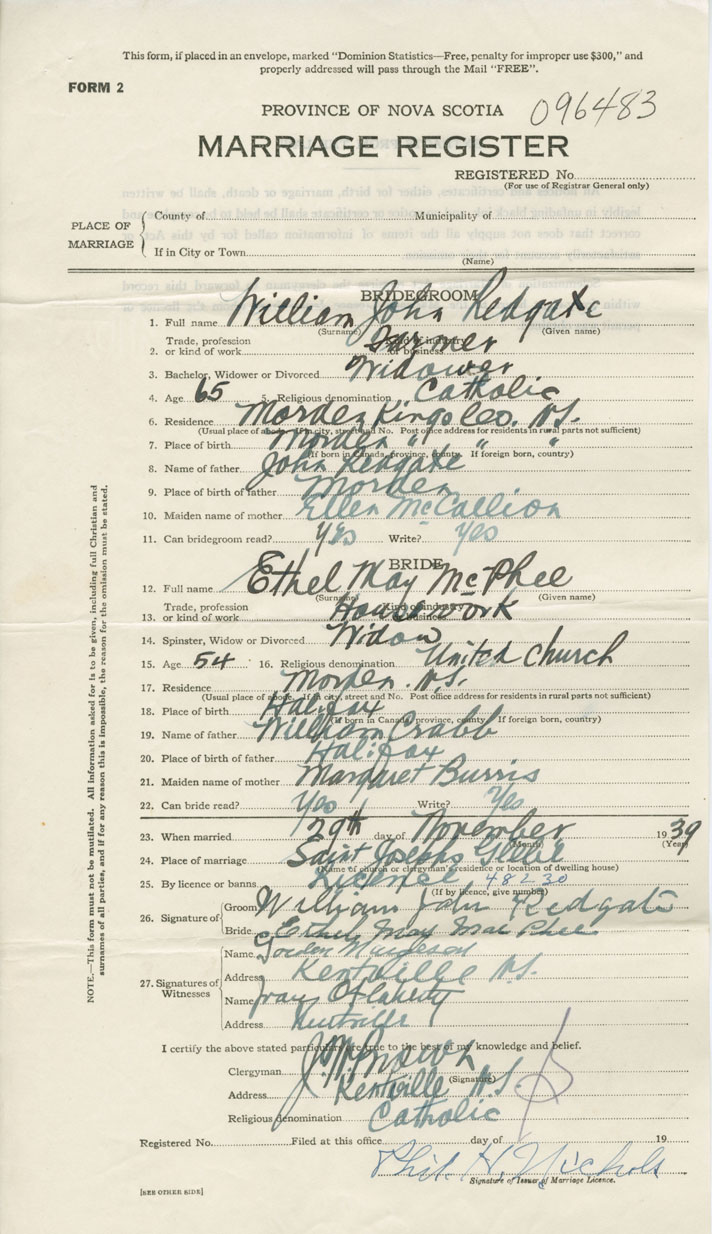 This form, if placed in an envelope, marked "Dominion Statistics—Free, penalty for improper use $300," and
properly addressed will pass through the Mail "FREE".
FORM 2
PROVINCE OF NOVA SCOTIA 096483
MARRIAGE REGISTER
REGISTERED No.
(For use of Registrar General only)
PLACE OF MARRIAGE
County of Municipality of
If in City or Town
(Name)
BRIDEGROOM
1. Full name William John Redgate
(Surname) (Given name)
Trade, profession Kind of industry
2. or kind of work or business Farmer
3. Bachelor, Widower or Divorced Widower
4. Age 65 5. Religious denomination Catholic
6. Residence Morden Kings Co. N.S.
(Usual place of abode. If in city, street and No. Post office address for residents in rural parts not sufficient)
7. Place of birth Morden " " "
(If born in Canada, province, county. If foreign born, country)
8. Name of father John Redgate
9. Place of birth of father Morden
10. Maiden name of mother Ellen McCallion
11. Can bridegroom read? Yes Write? Yes
BRIDE
12. Full name Ethel May McPhee
(Surname) (Given name)
Trade, profession Kind of industry
13. or kind of work or business House work
14. Spinster, Widow or Divorced Widow
15. Age 54 16. Religious denomination United Church
17. Residence Morden N.S.
(Usual place of abode. If in city street and No. Post office address for residents in rural parts not sufficient)
18. Place of birth Halifax
(If born in Canada province, county. If foreign born, country)
19. Name of father William Crabb
20. Place of birth of father Halifax
21. Maiden name of mother Margaret Burris
22. Can bride read? Yes Write? Yes
23. When married 29th day of November 1939
(Month) (Year)
24. Place of marriage Saint Josephs Glebe
(Name of church or clergyman's residence or location of dwelling house)
25. By licence or banns Licence 482-20
(If by licence, give number)
26. Signature of
Groom William John Redgate
Bride Ethel May Mac Phee
27. Signatures of Witnesses
Name Gordon
Address Kentville N.S.
Name O'Flaherty
Address Kentville
I certify the above stated particulars are true to the best of my knowledge and belief.
Clergyman
(Signature)
Address Kentville N.S.
Religious denomination Catholic
Registered No. Filed at this office day of 19
Phil. H. Nichols
Signature of Issuer of Marriage Licence.
[SEE OTHER SIDE]
NOTE.—This form must not be mutilated. All information asked for is to be given, including full Christian and
surnames of all parties, and if for any reason this is impossible, the reason for the omission must be stated.